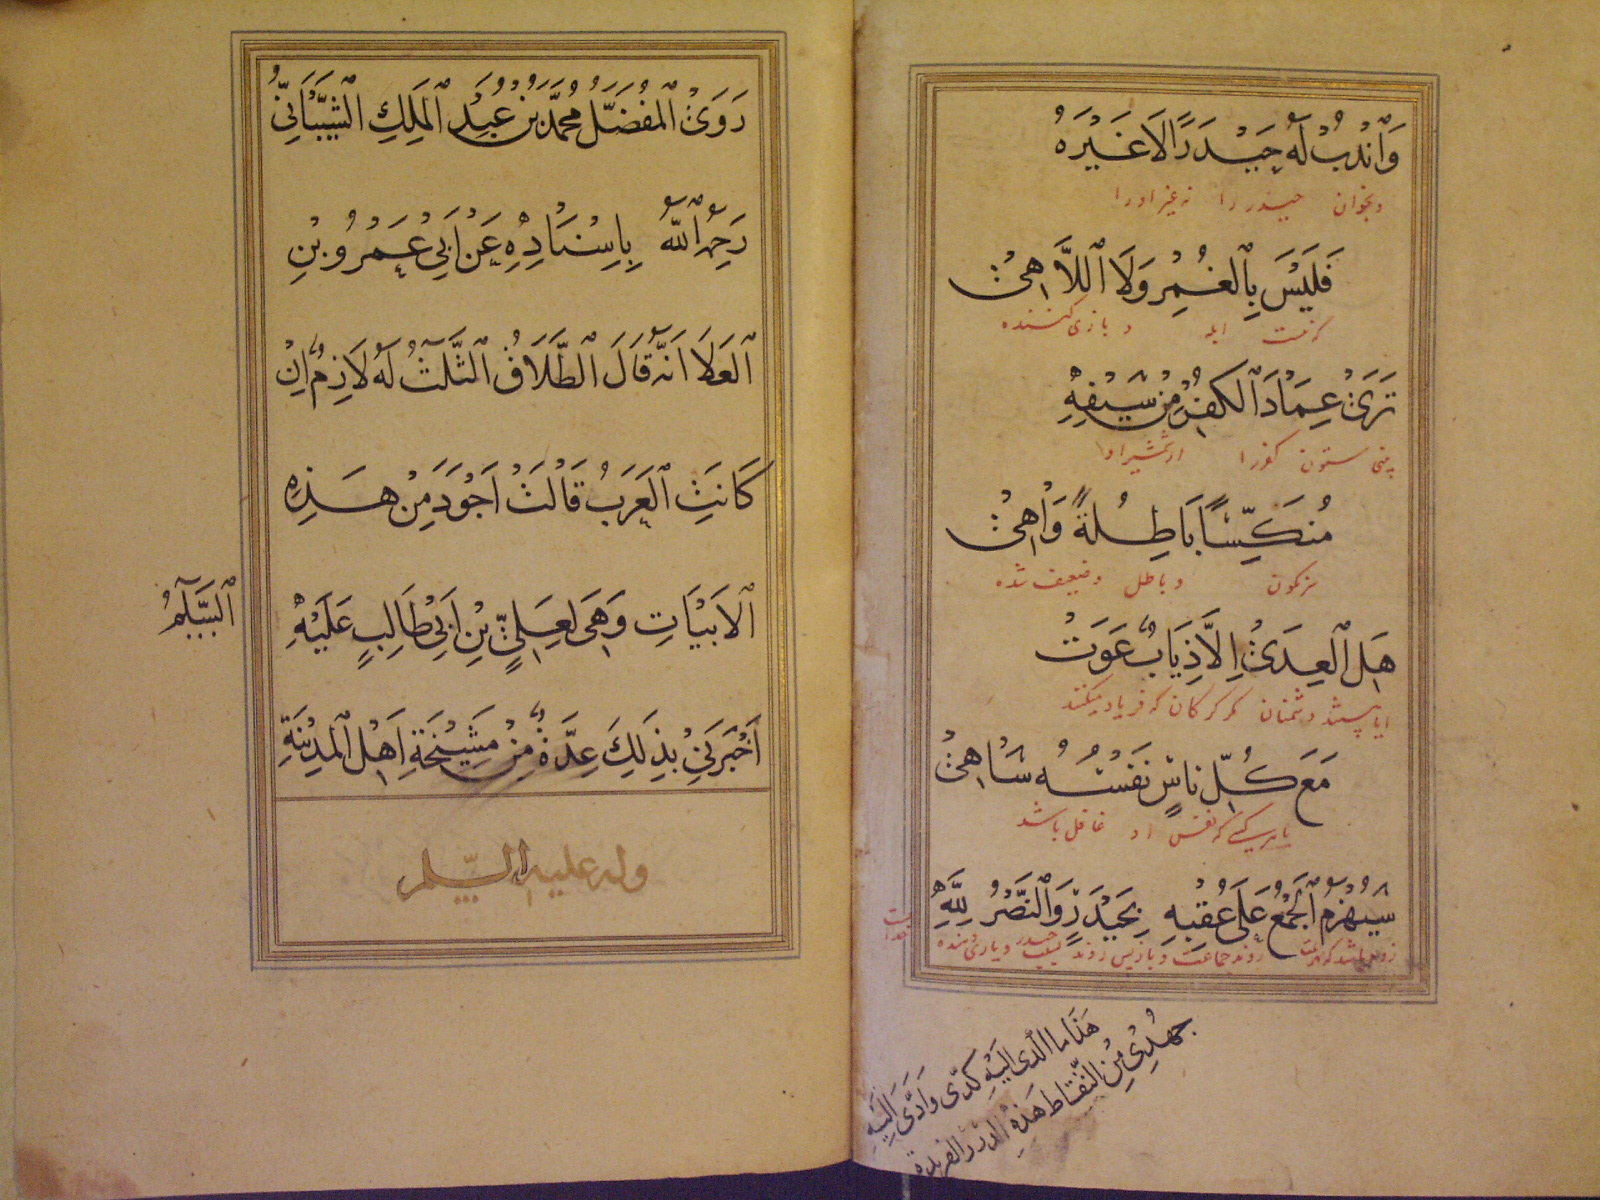 وَانْدُبْ لَهُ حَيْدَرًا لَا غَيْرَهُ
وبخوان حیدر را نه غیر او را
فَلَيْسَ بِالْغُمْرِ وَلَا اللَّاهِيْ
كه نیست ابله و بازی کننده
تَرَىْ عِمَادَ الْكُفْرِ مِنْ سَيْفِهِ
بینی ستون کفر را از شمشیر او
مُنَكَّسًا بَاطِلُهُ وَاهِيْ
سرنگون و باطل وضعیف شده
هَلِ الْعِدَىْ اِلَّا ذِيَابٌ عَوَتْ
ایا هستند دشمنان مگر گرگان که فریاد میکنند
مَعَ كُلِّ نَاسٍ نَفْسُهُ سَاهِيْ
با هر کسی که نفس او غافل باشد
سَيُهْزَمُ الْجَمْعُ عَلَى عُقْبِهِ بِحَيْدَرٍ وَالنَّصْرُ لِلَّهِ
زود باشد که هزیمت روند جماعت و بازپس روند بسبب حیدر و یاری دهنده
خدا
هَذَا مَا الَّذِى اِلَيْهِ كَدِّى وَاَدَّى اِلَيْهِ
جُهْدِيْ مِنْ الْتِقَاطِ هَذِهِ الدُّرَرِ الفريدة
رَوَىْ الْمُفَضَّلُ مُحَمَّدُ بْنُ عَبْدِ الْمَلِكِ الشَّيْبَانِيُّ
رَحِمَهُ اللَّهُ بِاِسْنَادِهِ عَنْ اَبِيْ عَمْرِو بْنِ
الْعَلَا اَنَّهُ قَالَ الطَّلَاقُ الثَّلٰثُ لَهُ لَازِمٌ اِنْ
كَانَتِ الْعَرَبُ قَالَتْ اَجْوَدَ مِنْ هَذِهِ
الْاَبْيَاتِ وَهِيَ لِعَلِيِّ بْنِ اَبِيْ طَالِبٍ عَلَيْهِ
السَّلٰمُ
اَخْبَرَنِيْ بِذَلِكَ عِدَّةٌ مِنْ مَشِيْخَةِ اَهْلِ الْمَدِيْنَةِ
وله عليه السّلم